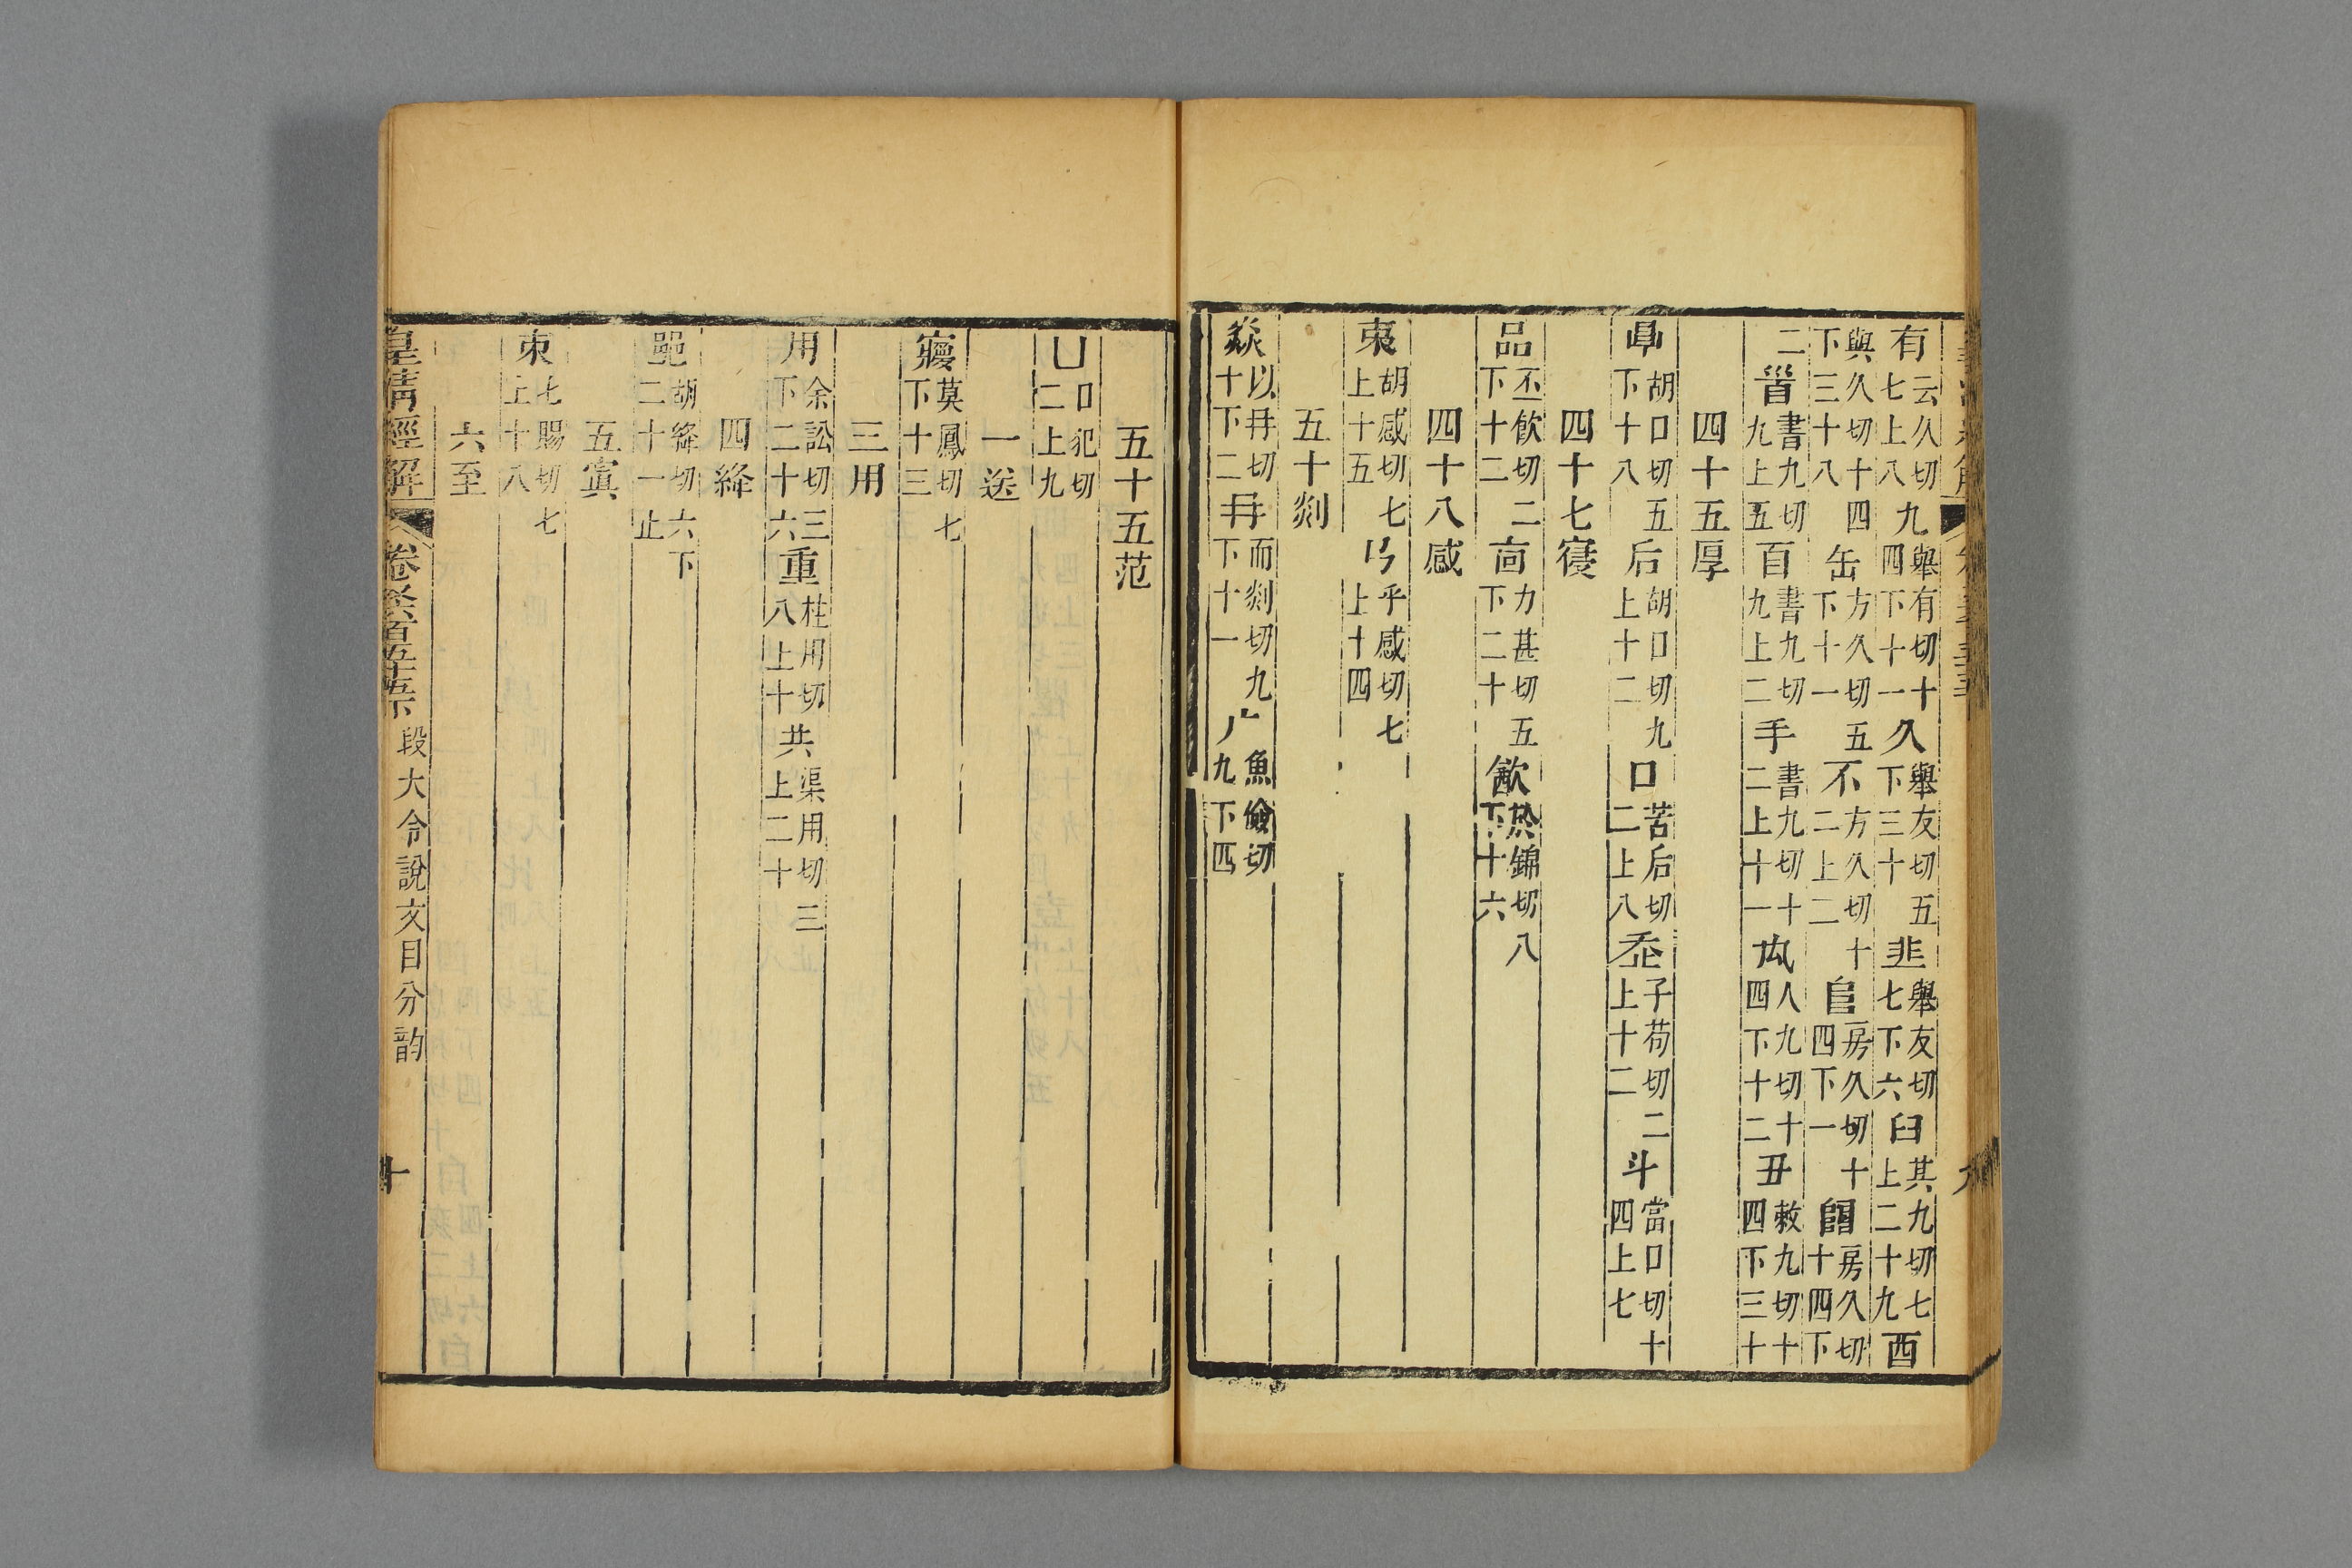 有云久切七上八九舉有切十四下十一久舉友切五下三十韭舉友切七下六臼其九切七上二十九酉
與久切十四下三十八缶方久切五下十一不方久切十二上二𨸏房久切十四下一𨺅房久切十四下
二𩠐書九切九上五百書九切九上二手書九切十二上十一禸人九切十四下十二丑敕九切十四下三十
四十五厚
㫗胡口切五下十八后胡口切九上十二口苦后切二上八走子苟切二上十二斗當口切十四上七
四十七寑
品丕飲切二下十二㐭力甚切五下二十㱃於錦切八下十六
四十八感
𣐺胡感切七上十五𢎘乎感切七上十四
五十剡
焱以冉切十下二冄而剡切九下十一广魚儉切九下四
五十五范
凵口犯切二上九
一送
㝱莫鳳切七下十三
三用
用余訟切三下二十六重柱用切八上十共渠用切三上二十
四絳
𨛜胡絳切六下二十一止
五寘
朿七賜切七上十八
六至
皇清經解 卷六百五十五下 段大令說文目分韵 十